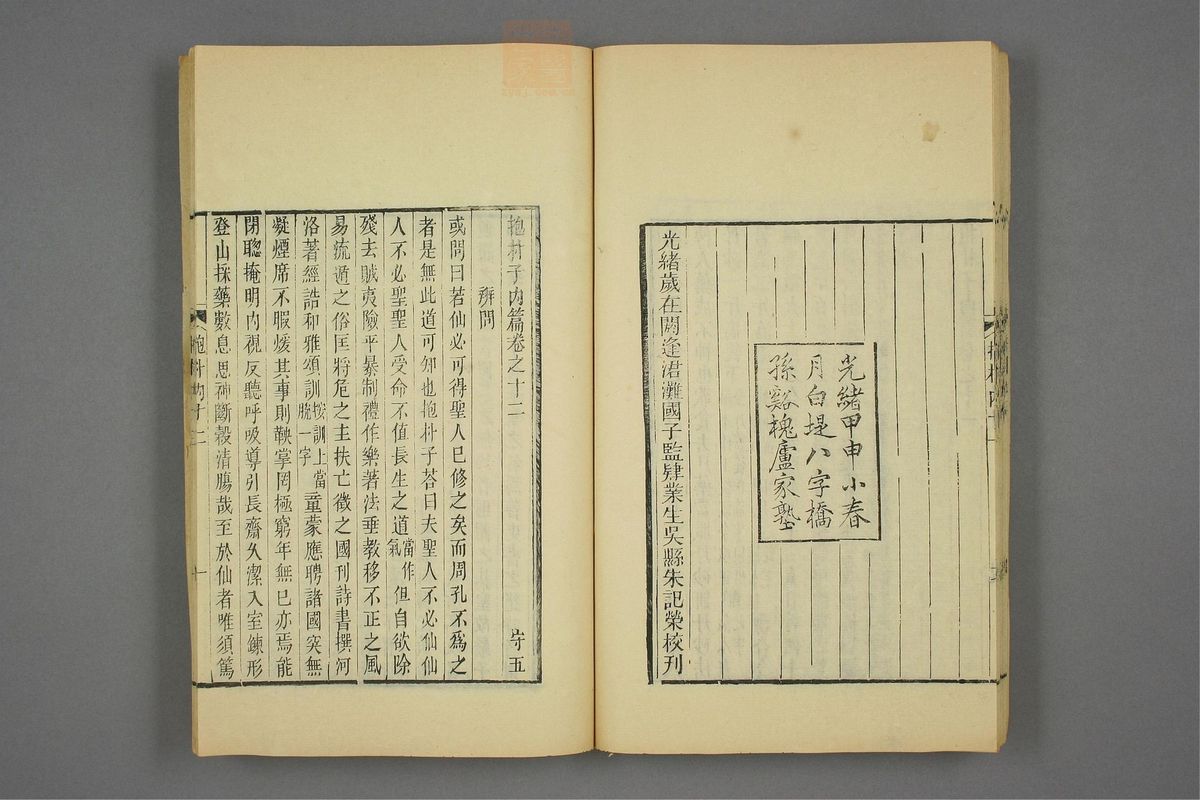 光緒甲申小春
月白堤八字橋
孫谿槐廬家塾
光緒歲在閼逢涒灘國子監肄業生吳縣朱記榮校刊
抱朴子內篇卷之十二
辨問 守五
或問曰若仙必可得聖人已修之矣而周孔不爲之
者是無此道可知也抱朴子荅曰夫聖人不必仙仙
人不必聖聖人受命不值長生之道當作氣但自欲除
殘去賊夷險平暴制禮作樂著法垂教移不正之風
易流遁之俗匡將危之主扶亡徵之國刊詩書撰河
洛著經誥和雅頌訓按訓上當脫一字童蒙應聘諸國突無
凝煙席不暇煖其事則鞅掌罔極窮年無已亦焉能
閉聰掩明內視反聽呼吸導引長齋久潔入室鍊形
登山採藥數息思神斷穀清腸哉至於仙者唯須篤
抱朴內十二
十